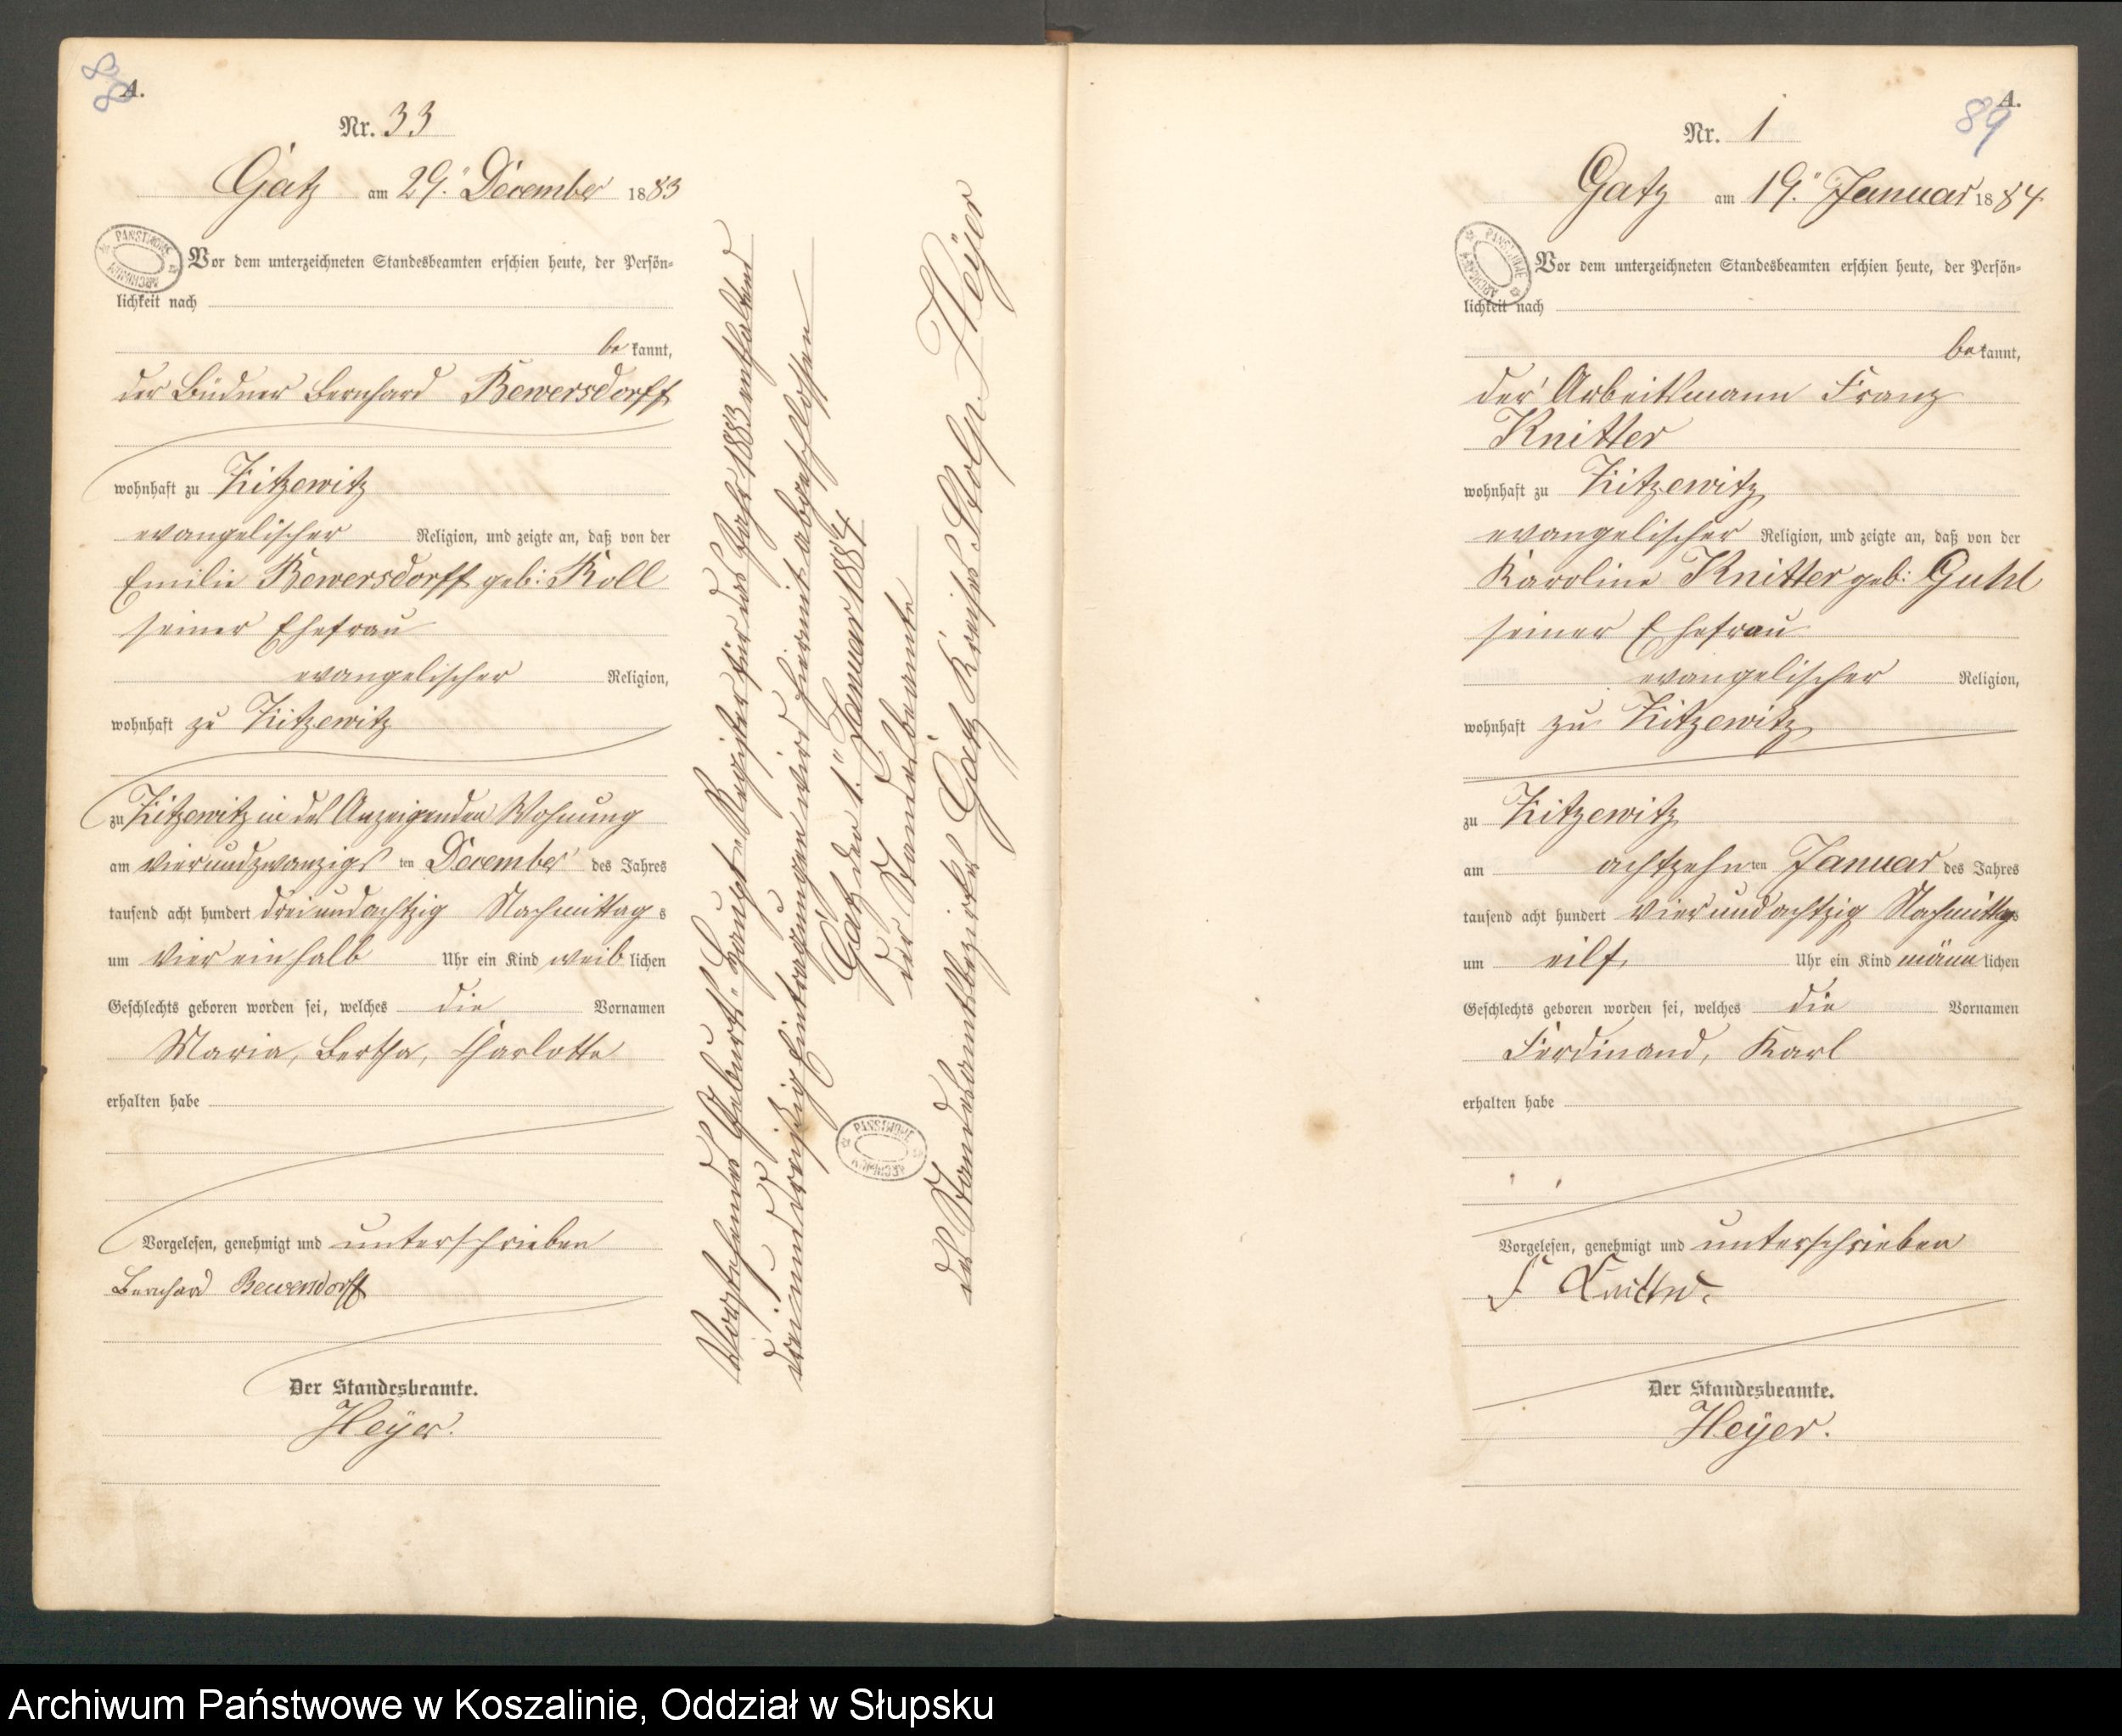 88
A.
Nr. 33
Gatz am 29. December 1883
Vor dem unterzeichneten Standesbeamten erschien heute, der Persön-
lichkeit nach
be kannt,
der Büdner Bernhard Bewersdorff
wohnhaft zu Zitzewitz
evangelischer Religion, und zeigte an, daß von der
Emilie Bewersdorff geb: Koll
seiner Ehefrau
evangelischer Religion,
wohnhaft zu Zitzewitz
zu Zitzewitz in des Anzeigenden Wohnung
am vierundzwanzigs ten December des Jahres
tausend acht hundert dreiundachtzig Nachmittag s
um vier ein halb Uhr ein Kind weib lichen
Geschlechts geboren worden sei, welches die Vornamen
Maria, Bertha, Charlotte
erhalten habe
Vorgelesen, genehmigt und unterschrieben
Bernhard Bewersdorff
Der Standesbeamte.
Heyer.
Vorstehendes Geburts-Haupt-Register für das Jahr 1883 enthaltend
dreiunddreißig Eintragungen wird hiermit abgeschlossen
Gatz den 1. Januar 1884
der Standesbeamte
des Standesamtsbezirks Gatz Kreises Stolp. Heyer
PAŃSTWOWE ARCHIWUM
89
A.
Nr. 1
Gatz am 19. Januar 1884
Vor dem unterzeichneten Standesbeamten erschien heute, der Persön-
lichkeit nach
be kannt,
der Arbeitsmann Franz
Knitter
wohnhaft zu Zitzewitz
evangelischer Religion, und zeigte an, daß von der
Karoline Knitter geb: Guhl
seiner Ehefrau
evangelischer Religion,
wohnhaft zu Zitzewitz
zu Zitzewitz
am achtzehn ten Januar des Jahres
tausend acht hundert vierundachtzig Nachmittags
um eilf Uhr ein Kind männ lichen
Geschlechts geboren worden sei, welches die Vornamen
Ferdinand, Karl
erhalten habe
Vorgelesen, genehmigt und unterschrieben
F Knitter
Der Standesbeamte.
Heyer.
Archiwum Państwowe w Koszalinie, Oddział w Słupsku